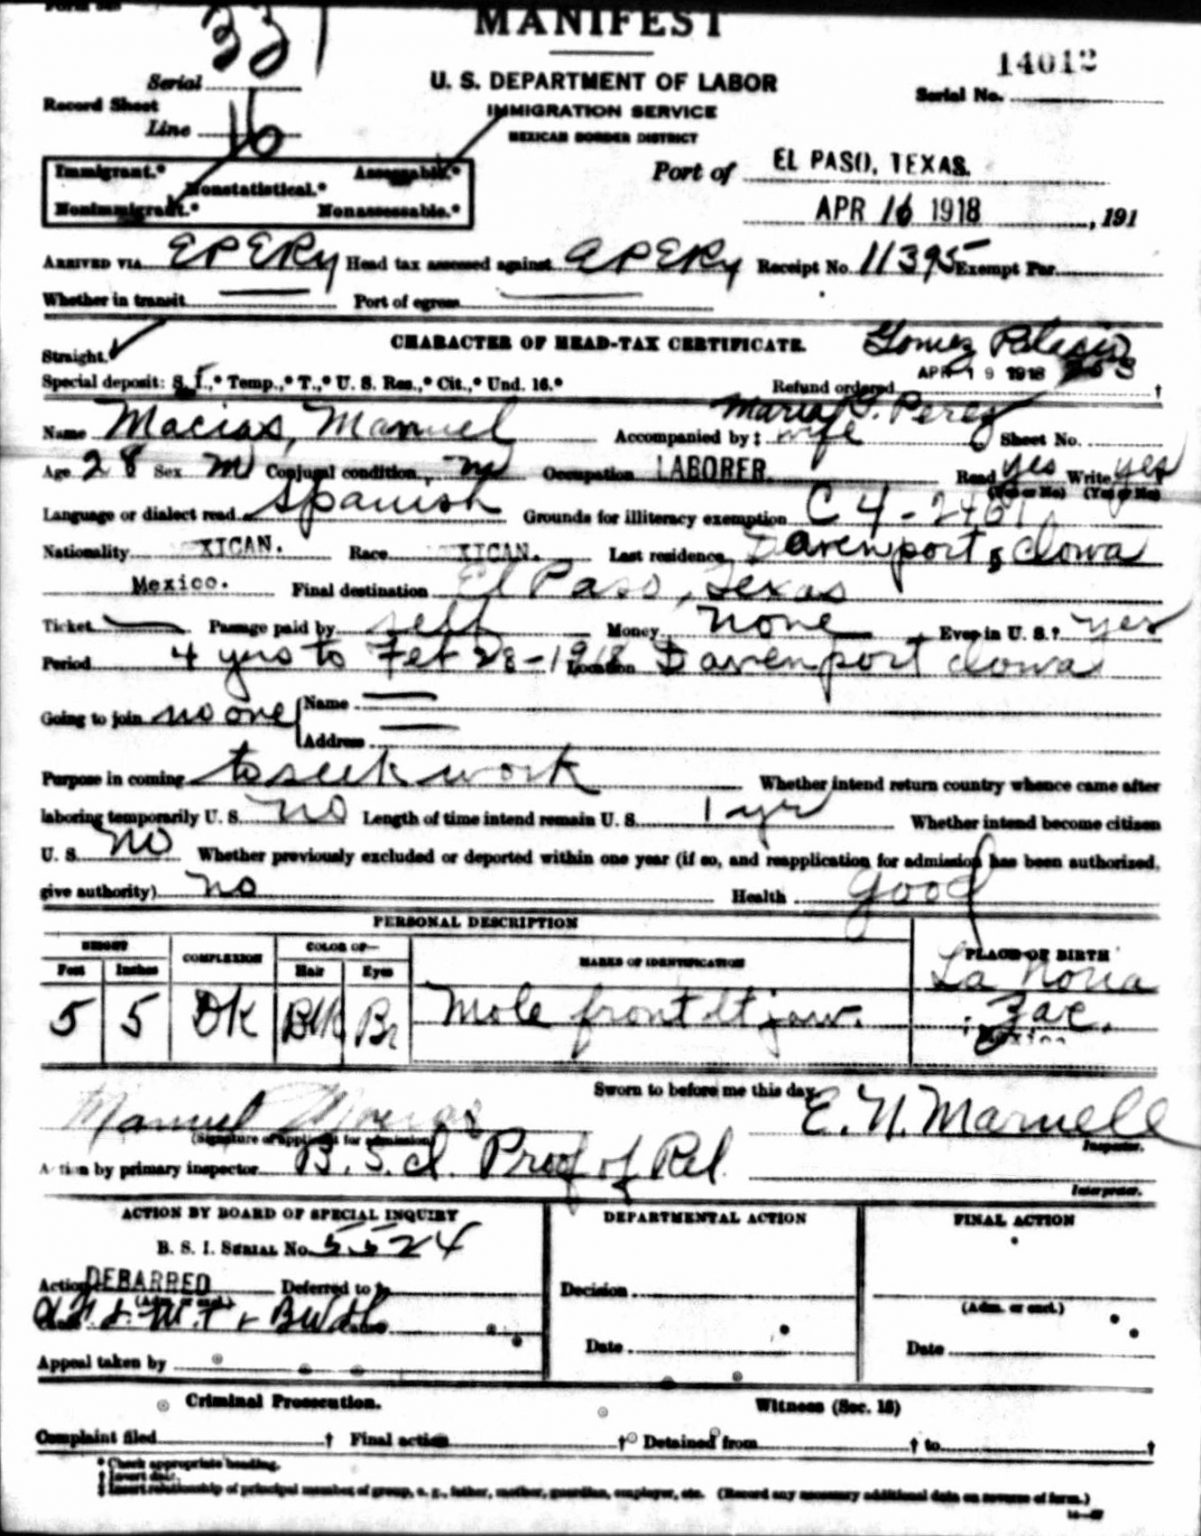 MANIFEST
331
14012
Serial
U. S. DEPARTMENT OF LABOR
Serial No.
Record Sheet
IMMIGRATION SERVICE
Line 16
MEXICAN BORDER DISTRICT
Immigrant.* Assessable.*
Port of EL PASO, TEXAS.
Nonstatistical.*
Nonimmigrant.* Nonassessable.*
APR 16 1918, 191
ARRIVED VIA EPERy Head tax assessed against EPERy Receipt No. 11395 Exempt Par.
Whether in transit Port of egress
Straight. CHARACTER OF HEAD-TAX CERTIFICATE. Gomez Palacio
Special deposit: S. I.,* Temp.,* T.,* U. S. Res.,* Cit.,* Und. 16.* Refund ordered APR 19 1918 †
Maria G. Perez
Name Macias, Manuel Accompanied by ‡ wife Sheet No.
Age 28 Sex M Conjugal condition M Occupation LABORER. Read yes Write yes
(Yes or No) (Yes or No)
Language or dialect read Spanish Grounds for illiteracy exemption C4-2461
Nationality XICAN. Race XICAN. Last residence Davenport, Iowa
Mexico. Final destination El Paso, Texas
Ticket Passage paid by self Money none Ever in U. S.? yes
Period 4 yrs to Feb 28-1918 Location Davenport Iowa
Going to join no one Name
Address
Purpose in coming to seek work Whether intend return country whence came after
laboring temporarily U. S. no Length of time intend remain U. S. 1 yr Whether intend become citizen
U. S. no Whether previously excluded or deported within one year (if so, and reapplication for admission has been authorized,
give authority) no Health good
PERSONAL DESCRIPTION
HEIGHT COMPLEXION COLOR OF— MARKS OF IDENTIFICATION PLACE OF BIRTH
Feet Inches Hair Eyes
5 5 DK Blk Br Mole front lt jaw. La Noria
Zac.
Mexico
Sworn to before me this day
Manuel Macias E. N. Marnell
(Signature of applicant for admission) Inspector.
Action by primary inspector B. S. I. Proof of Rel.
Interpreter.
ACTION BY BOARD OF SPECIAL INQUIRY DEPARTMENTAL ACTION FINAL ACTION
B. S. I. SERIAL No. 5524
Action DEBARRED Deferred to Decision
(Adm. or excl.) (Adm. or excl.)
Date Date
Appeal taken by
Criminal Prosecution. Witness (Sec. 18)
Complaint filed † Final action † Detained from † to †
* Check appropriate heading.
† Insert date.
‡ Insert relationship of principal member of group, e. g., father, mother, guardian, employer, etc. (Record any necessary additional data on reverse of form.)